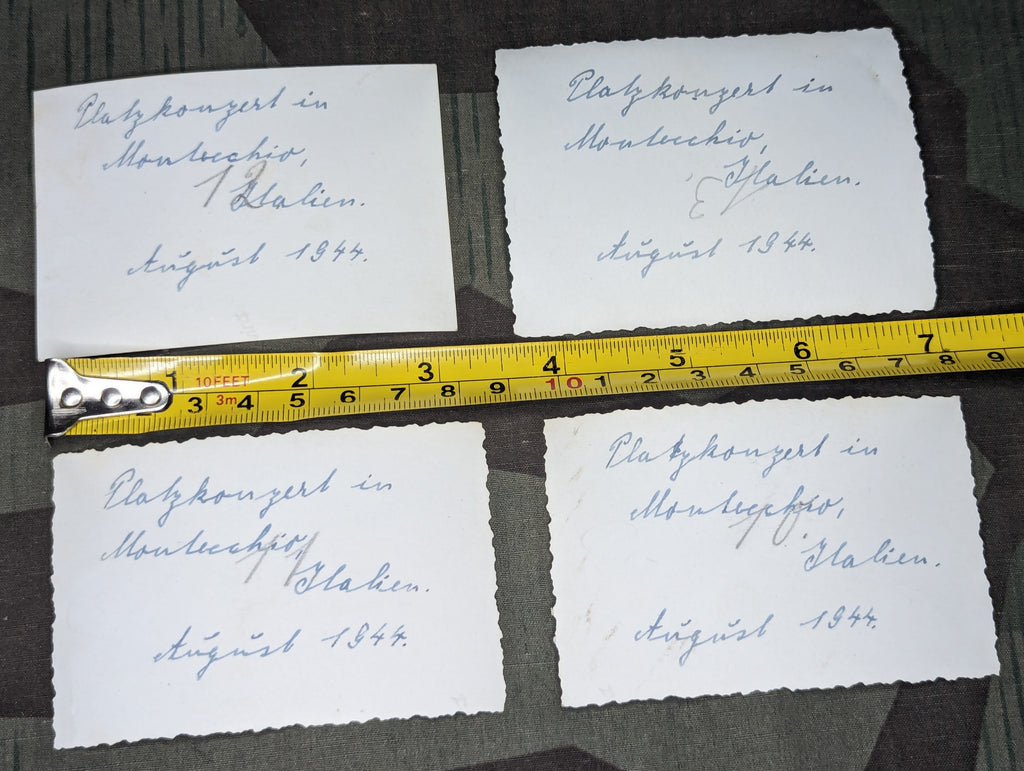 Platzkonzert in
Montecchio,
12
Italien.
August 1944.
Platzkonzert in
Montecchio,
Italien.
August 1944.
1 2 3 4 5 6 7
10FEET
3m
3 4 5 6 7 8 9 10 1 2 3 4 5 6 7 8 9
Platzkonzert in
Montecchio,
11
Italien.
August 1944.
Platzkonzert in
Montecchio,
10
Italien.
August 1944.